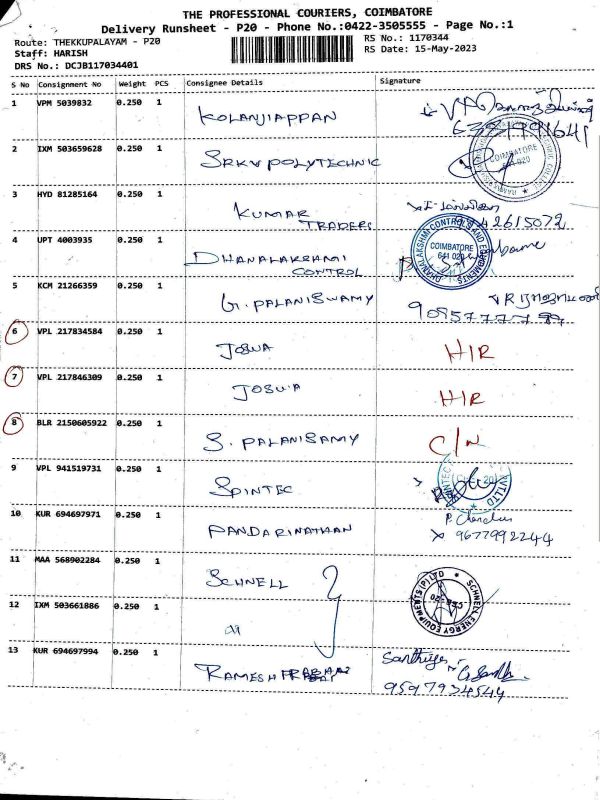 THE PROFESSIONAL COURIERS, COIMBATORE
Delivery Runsheet - P20 - Phone No.:0422-3505555 - Page No.:1
Route: THEKKUPALAYAM - P20
RS No.: 1170344
Staff: HARISH
RS Date: 15-May-2023
DRS No.: DCJB117034401
S No Consignment No Weight PCS Consignee Details Signature
1 VPM 5039832 0.250 1 KOLANJIAPPAN
2 IXM 503659628 0.250 1 SRKV POLYTECHNIC
COIMBATORE
641 020
3 HYD 81285164 0.250 1 KUMAR
TRADERS
4 UPT 4003935 0.250 1 DHANALAKSHMI
CONTROL
DHANALAKSHMI CONTROLS AND EQUIPMENTS
COIMBATORE
641 020
5 KCM 21266359 0.250 1 G. PALANISWAMY
6 VPL 217834584 0.250 1 JOSUA HIR
7 VPL 217846309 0.250 1 JOSUA HIR
8 BLR 2150605922 0.250 1 S. PALANISAMY C/N
9 VPL 941519731 0.250 1 SPINTEC
10 KUR 694697971 0.250 1 PANDARINATHAN
9677992244
11 MAA 568902284 0.250 1 SCHNELL
SCHNELL ENERGY EQUIPMENTS (P) LTD
CBE-20
12 IXM 503661886 0.250 1
13 KUR 694697994 0.250 1 RAMESH PRABAN
Santhiya
9597934544